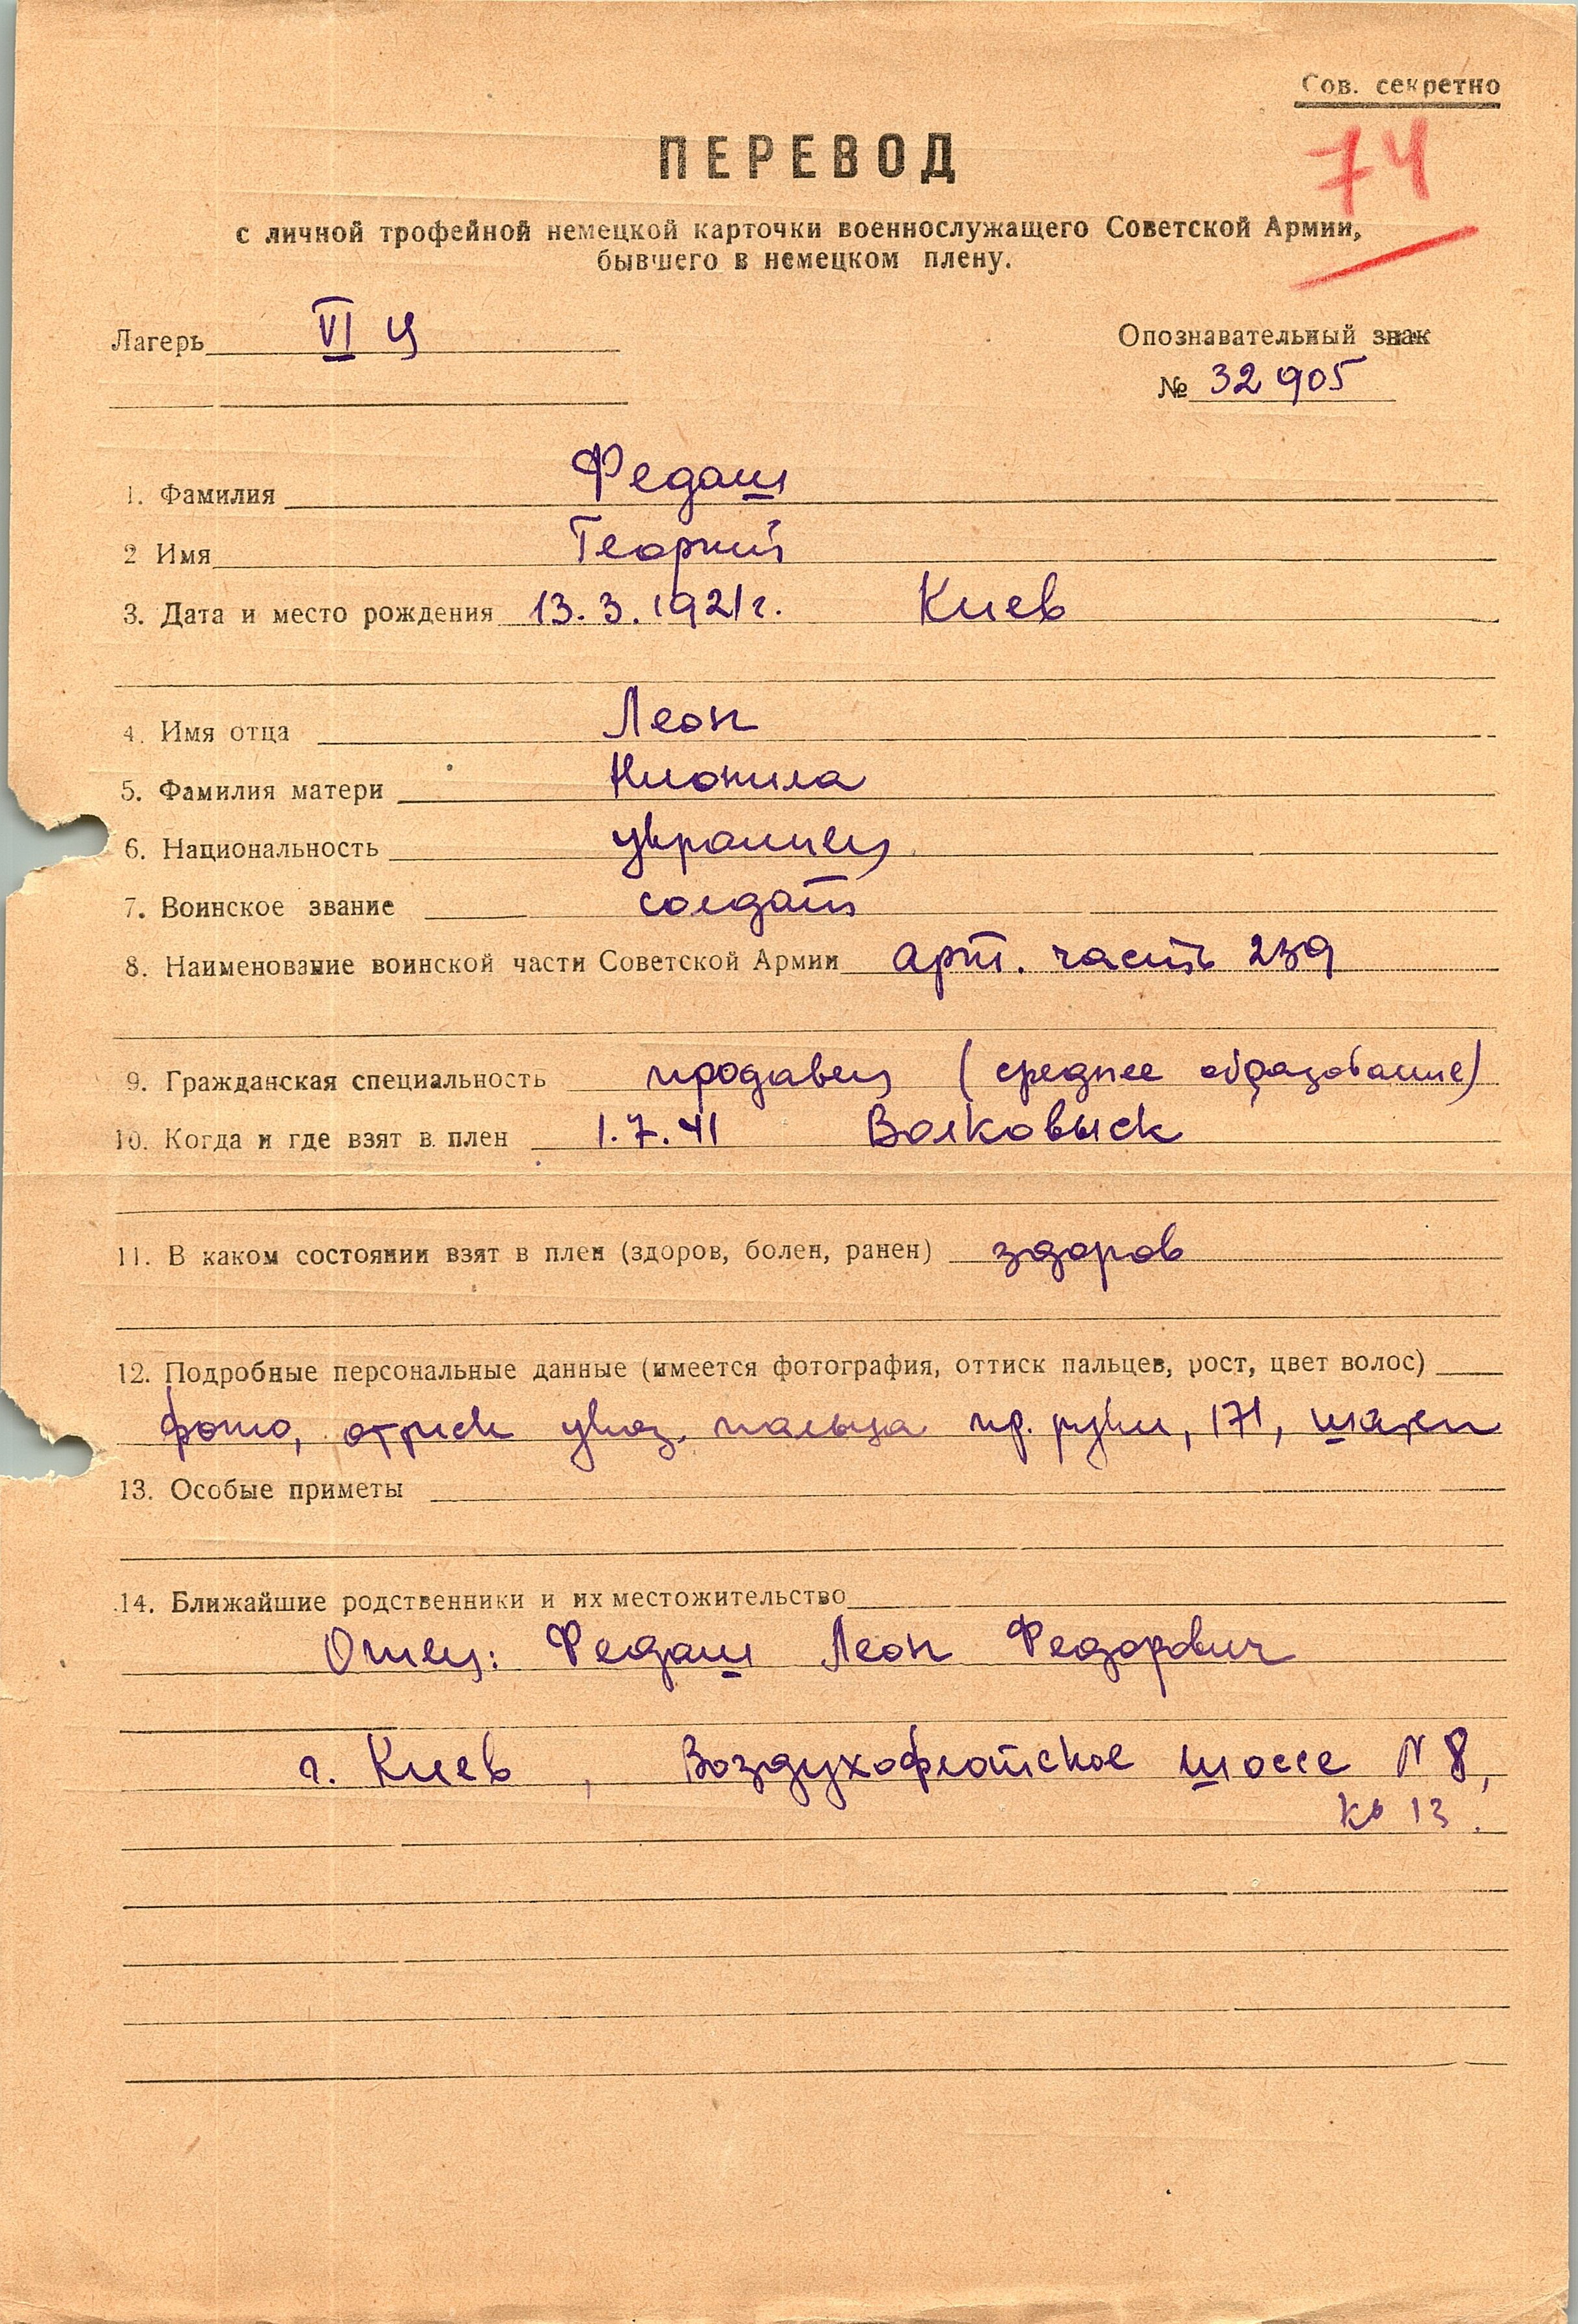 Сов. секретно
74
ПЕРЕВОД
с личной трофейной немецкой карточки военнослужащего Советской Армии,
бывшего в немецком плену.
Лагерь VI
Опознавательный знак
№ 32905
1. Фамилия Федаш
2 Имя Георгий
3. Дата и место рождения 13.3.1921г. Киев
4. Имя отца Леон
5. Фамилия матери
6. Национальность украинец
7. Воинское звание солдат
8. Наименование воинской части Советской Армии арт. часть 239
9. Гражданская специальность продавец (среднее образование)
10. Когда и где взят в плен 1.7.41 Волковыск
11. В каком состоянии взят в плен (здоров, болен, ранен) здоров
12. Подробные персональные данные (имеется фотография, оттиск пальцев, рост, цвет волос)
фото, отриск указ. пальца пр. руки, 171, шатен
13. Особые приметы
14. Ближайшие родственники и их местожительство
Отец: Федаш Леон Федорович
г. Киев, Воздухофлотское шоссе N 8,
кв 13.